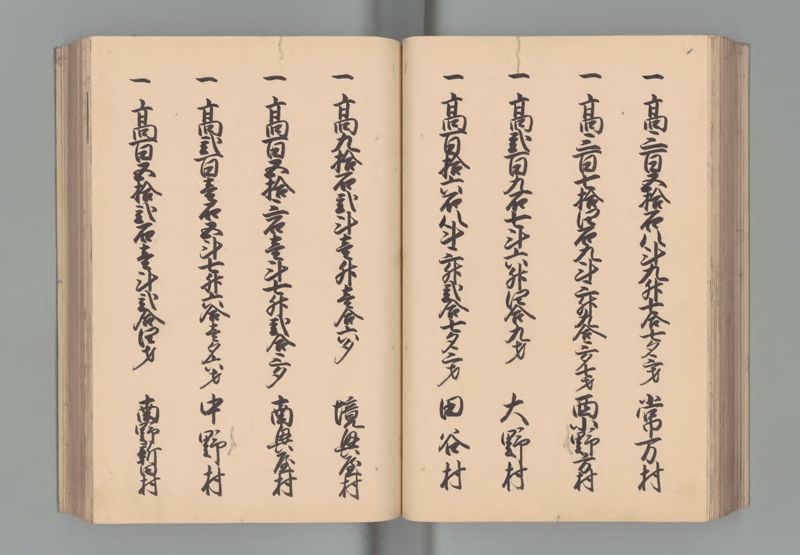 一 高三百五拾石八斗九升七合七夕三才 常万村
一 高三百七拾四石九斗三升九合三夕七才 西小野方村
一 高弐百九石七斗六升四合九才 大野村
一 高百拾六石八斗三升弐合七夕三才 田谷村
一 高九拾石弐斗壱升壱合六夕 境興屋村
一 高百五拾三石壱斗七升弐合三夕 南興屋村
一 高弐百壱石五斗七升六合壱夕八才 中野村
一 高百五拾弐石壱斗弐合四才 南野新田村